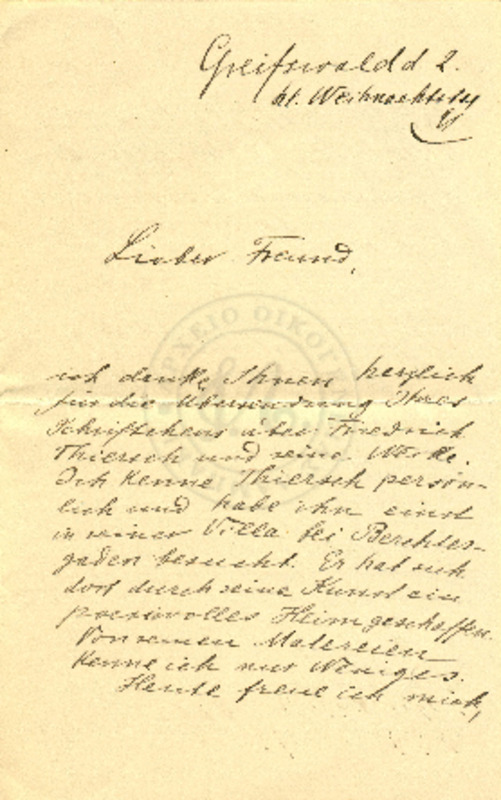 Greifswald d 2.
hl. Weihnachtstg
Lieber Freund,
ich danke Ihnen herzlich
für die Übersendung Ihres
Schriftchens über Friedrich
Thiersch und seine Werke.
Ich kenne Thiersch persön-
lich und habe ihn einst
in seiner Villa bei Berchtes-
gaden besucht. Er hat sich
dort durch seine Kunst ein
poesievolles Heim geschaffen.
Von seinen Malereien
kenne ich nur Weniges.
Heute freue ich mich,
ΑΡΧΕΙΟ ΟΙΚΟΓΕ